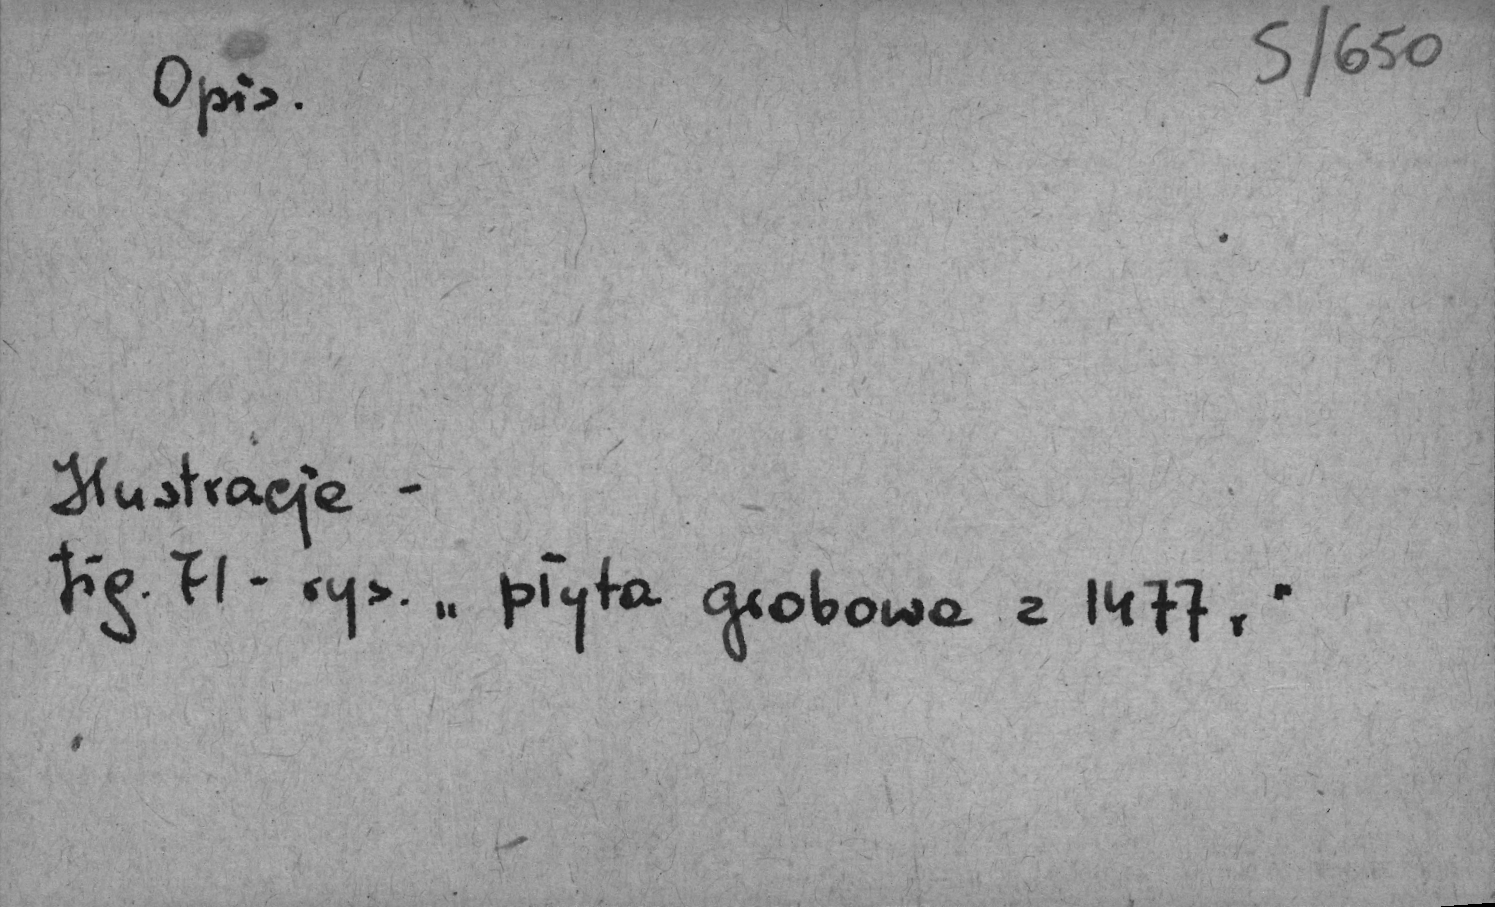 S/650
Opis.
Ilustracje -
fig. 71 - rys. „płyta grobowa z 1477 r"